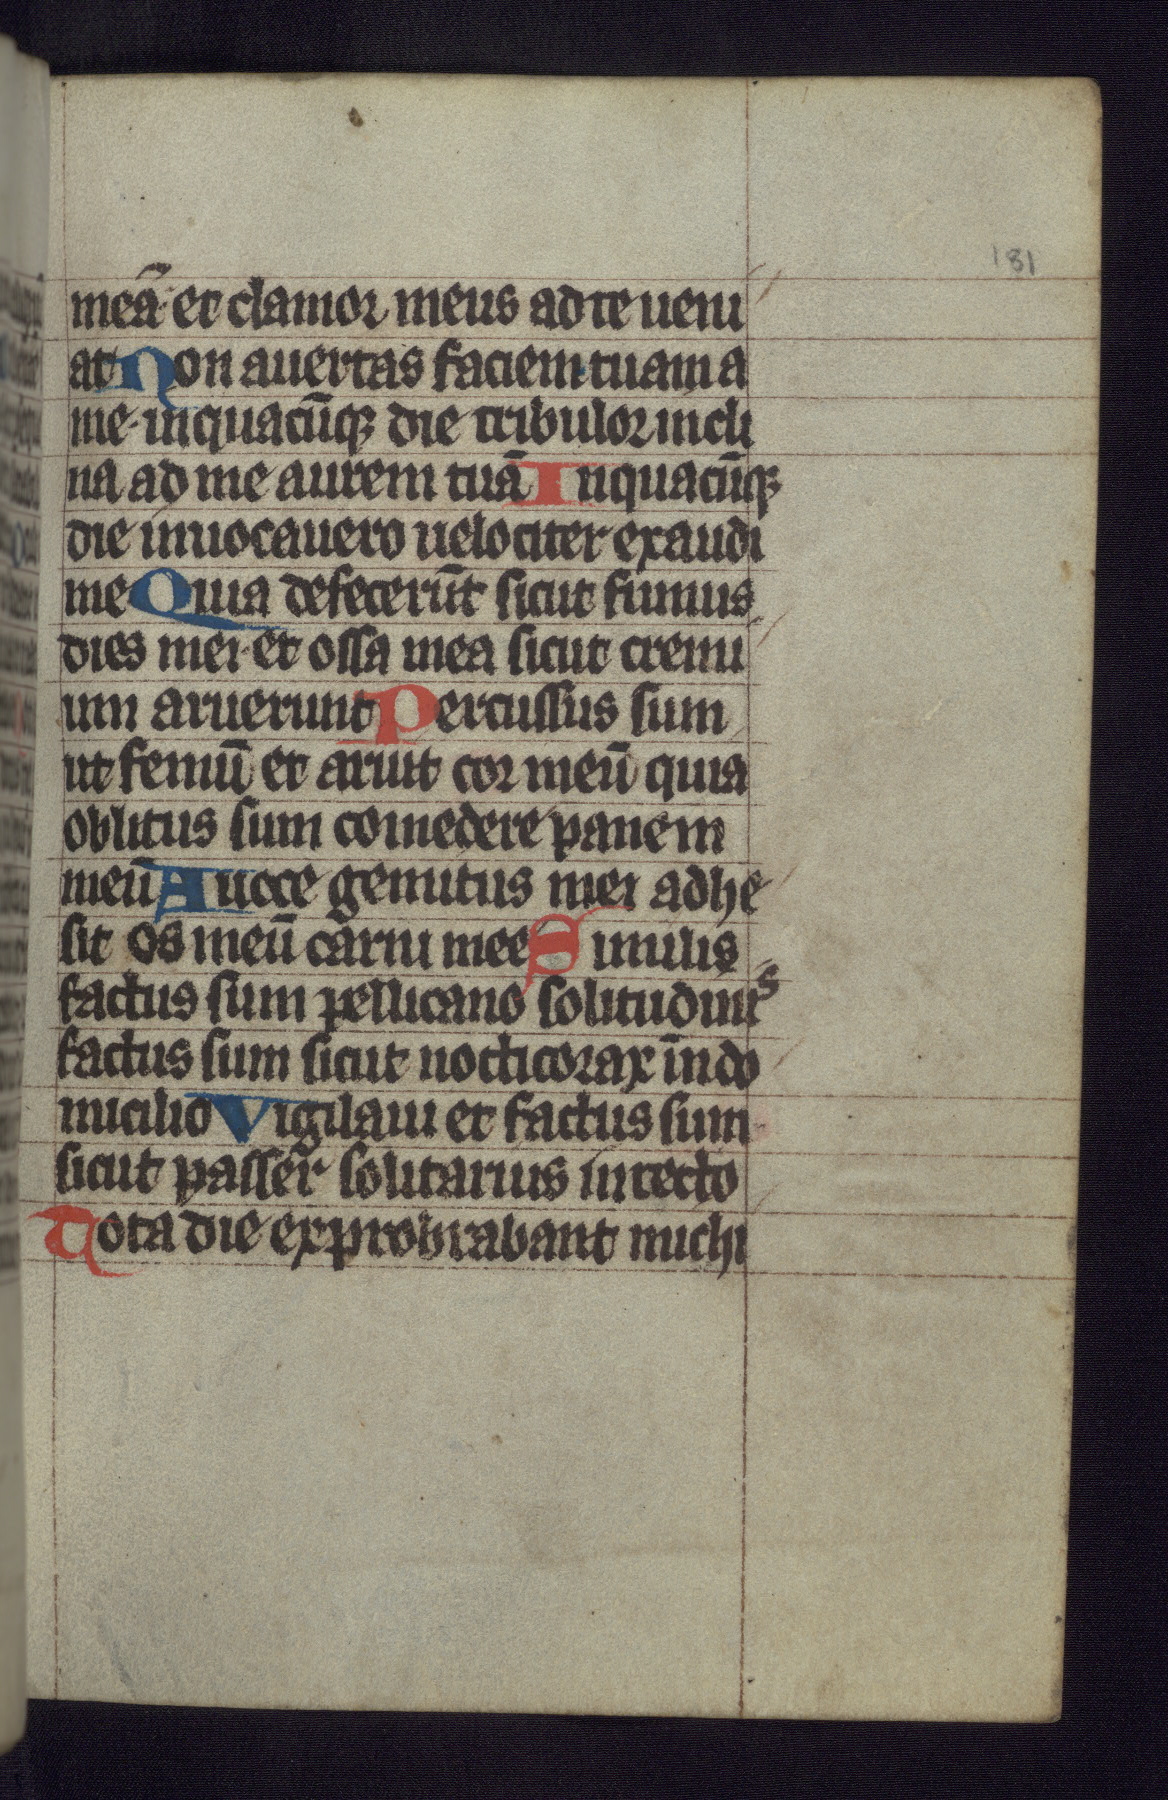 181
meā· et clamor meus ad te ueni
at Non auertas faciem tuam a
me· in quacūqꝫ die tribulor incli
na ad me aurem tuā In quacūqꝫ
die inuocauero uelociter exaudi
me Quia defecerūt sicut fumus
dies mei· et ossa mea sicut cremi
um aruerunt Percussus sum
ut fenuū et aruit cor meū quia
oblitus sum comedere panem
meū A uoce gemitus mei adhe
sit os meū carni mee Similis
factus sum pellicano solitudinis
factus sum sicut nocticorax in do
micilio Vigilaui et factus sum
sicut passer solitarius in tecto
Tota die exprobrabant michi